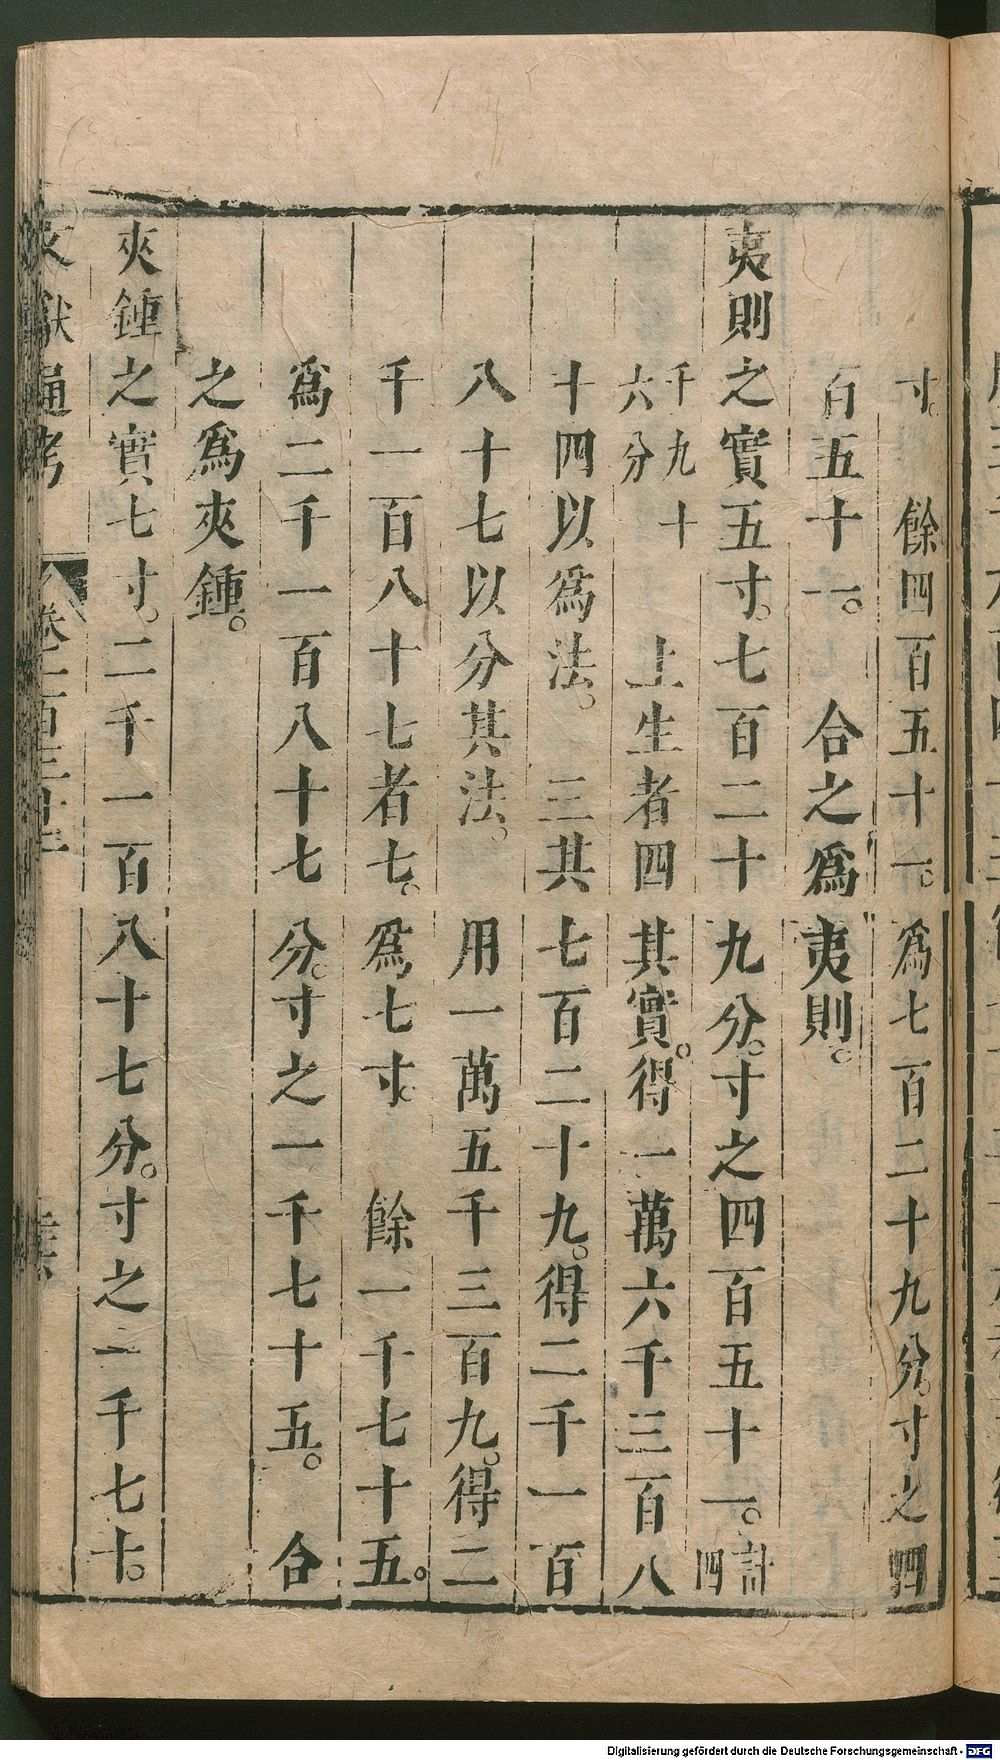 寸。餘四百五十一。爲七百二十九分。寸之四
百五十一。合之爲夷則。
夷則之實五寸。七百二十九分。寸之四百五十一。計四
千九十六分上生者四其實。得一萬六千三百八
十四以爲法。三其七百二十九。得二千一百
八十七以分其法。用一萬五千三百九。得二
千一百八十七者七。爲七寸。餘一千七十五。
爲二千一百八十七分。寸之一千七十五。合
之爲夾鍾。
夾鍾之實七寸。二千一百八十七分。寸之二千七十。
文獻通考
Digitalisierung gefördert durch die Deutsche Forschungsgemeinschaft - DFG